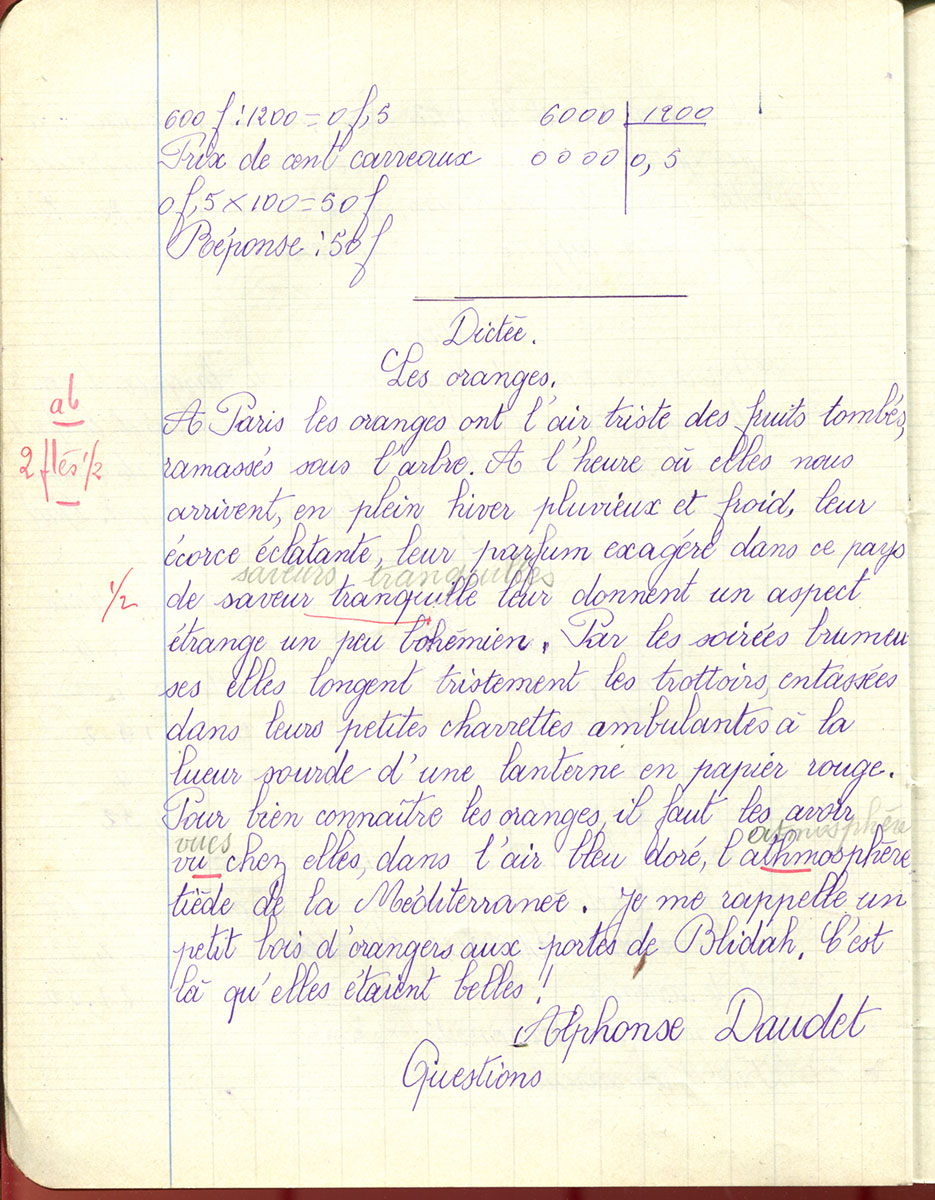 600 f : 1200 = 0 f, 5
6000 | 1200
Prix de cent carreaux
0000 | 0, 5
0 f, 5 × 100 = 50 f
Réponse : 50 f
Dictée.
Les oranges.
ab
A Paris les oranges ont l'air triste des fruits tombés,
2 ftes 1/2
ramassés sous l'arbre. A l'heure où elles nous
arrivent, en plein hiver pluvieux et froid, leur
écorce éclatante, leur parfum exagéré dans ce pays
saveurs tranquilles
1/2
de saveur tranquille leur donnent un aspect
étrange un peu bohémien. Par les soirées brumeu
ses elles longent tristement les trottoirs, entassées
dans leurs petites charrettes ambulantes à la
lueur sourde d'une lanterne en papier rouge.
Pour bien connaître les oranges, il faut les avoir
vues atmosphère
vu chez elles, dans l'air bleu doré, l'athmosphère
tiède de la Méditerranée. Je me rappelle un
petit bois d'orangers aux portes de Blidah. C'est
là qu'elles étaient belles !
Alphonse Daudet
Questions